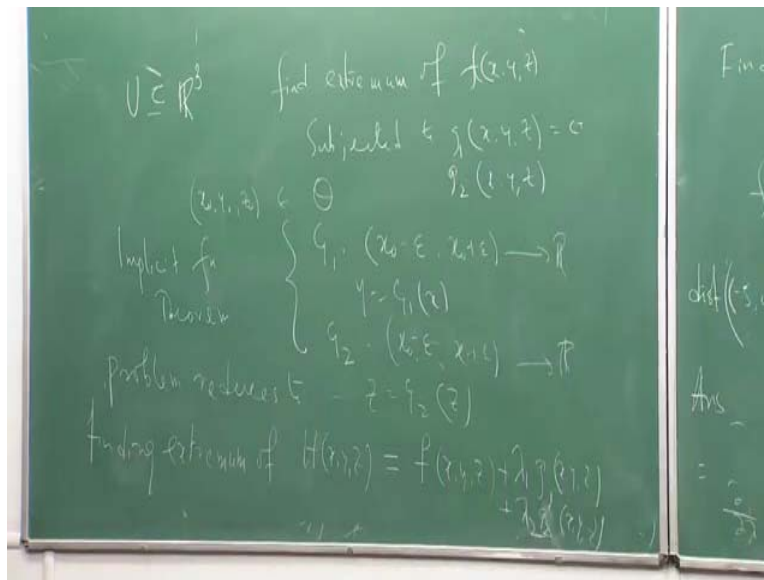 U ⊆ ℝ³ find extremum of f(x,y,z)
Subjected to g₁(x,y,z) = 0
g₂(x,y,z)
(x₀,y₀,z₀) ∈ Θ
Implicit fn
Theorem
φ₁ : (x₀-ε, x₀+ε) → ℝ
y = φ₁(x)
φ₂ : (x₀-ε, x+ε) → ℝ
problem reduces to z = φ₂(z)
finding extremum of H(x,y,z) = f(x,y,z) + λ₁g(x,y,z)
+ λ₂g(x,y,z)
Find
dist((-5,
Ans
=